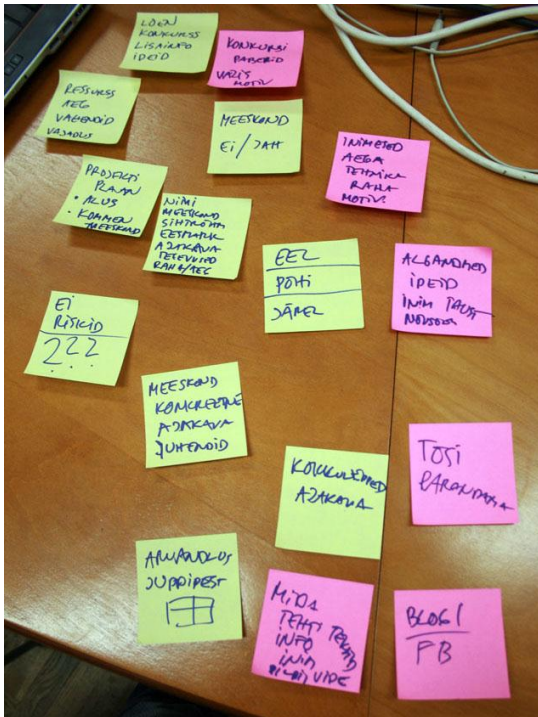 LOEN
KONKURSS
LISAINFO
IDEID
KONKURSI
PABERID
MOTIV
RESSURSS
AEG
VAHENDID
VAJADUS
MEESKOND
EI / JAH
INIMESED
AEGA
TEHNIKA
RAHA
MOTIV.
PROJEKTI
PLAAN
• ALUS
• KOMMEN
MEESKOND
NIMI
MEESKOND
SIHTRÜHM
EESMÄRK
AJAKAVA
TEGEVUSED
RAHA/AEG
EEL
PÕHI
JÄREL
ALGANDMED
IDEID
INIM TAUST
EI
RISKID
???
MEESKOND
KONKREETNE
AJAKAVA
JUHENDID
KOKKULEPPED
AJAKAVA
TÖSI
PARANDADA
ARUANDLUS
JUPPIDEST
MIDA
TEHTI
INFO
INIM
BLOGI
FB